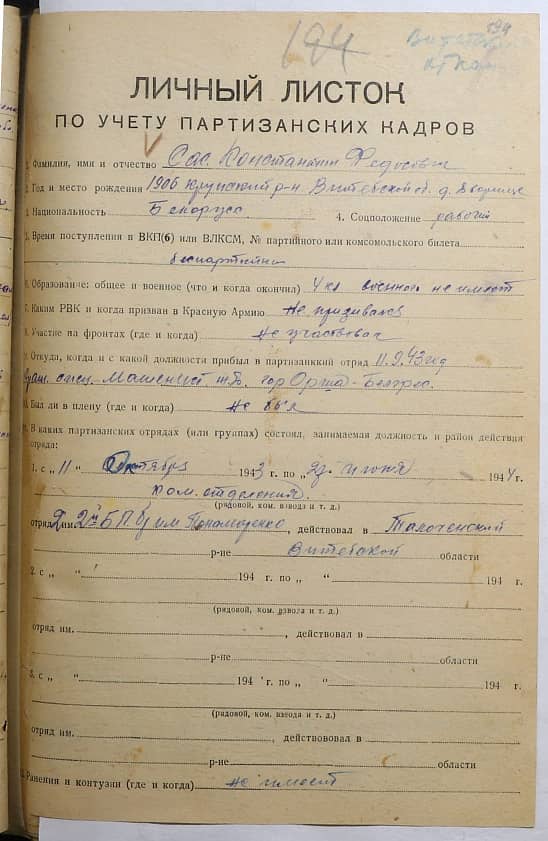 194
194
ЛИЧНЫЙ ЛИСТОК
ПО УЧЕТУ ПАРТИЗАНСКИХ КАДРОВ
Фамилия, имя и отчество Сас Константин Федосович
Год и место рождения 1906 Крупский р-н Витебской об. д.
Национальность Белорус 4. Соцположение рабочий
Время поступления в ВКП(б) или ВЛКСМ, № партийного или комсомольского билета
беспартейный
Образование: общее и военное (что и когда окончил) 4 кл военного не имеет
Каким РВК и когда призван в Красную Армию не призывался
Участие на фронтах (где и когда) не участвовал
Откуда, когда и с какой должности прибыл в партизанский отряд 11.9.43 год
спец. Машинист гор Орша -
Был ли в плену (где и когда) не был
В каких партизанских отрядах (или группах) состоял, занимаемая должность и район действия
отряда:
1. с „ 11 “ Октября 1943 г. по „ 29 июня 1944 г.
ком. отделения
(рядовой, ком. взвода и т. д.)
отряд им. им Пономаренко, действовал в Толоченский
р-не Витебской области
2. с „ “ 194 г. по „ “ 194 г.
(рядовой, ком. взвода и т. д.)
отряд им. , действовал в
р-не области
3. с „ “ 194 г. по „ “ 194 г.
(рядовой, ком. взвода и т. д.)
отряд им. , действововал в
р-не области
Ранения и контузии (где и когда) не имеет